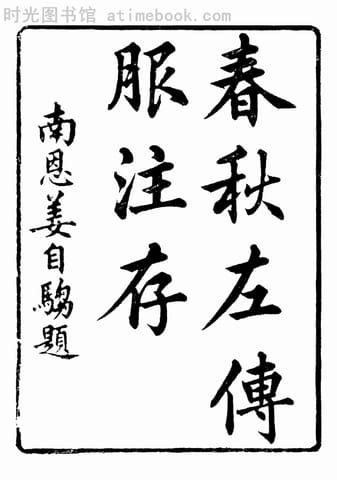 时光图书馆 atimebook.com
春秋左傳
服注存
南恩姜自騶題